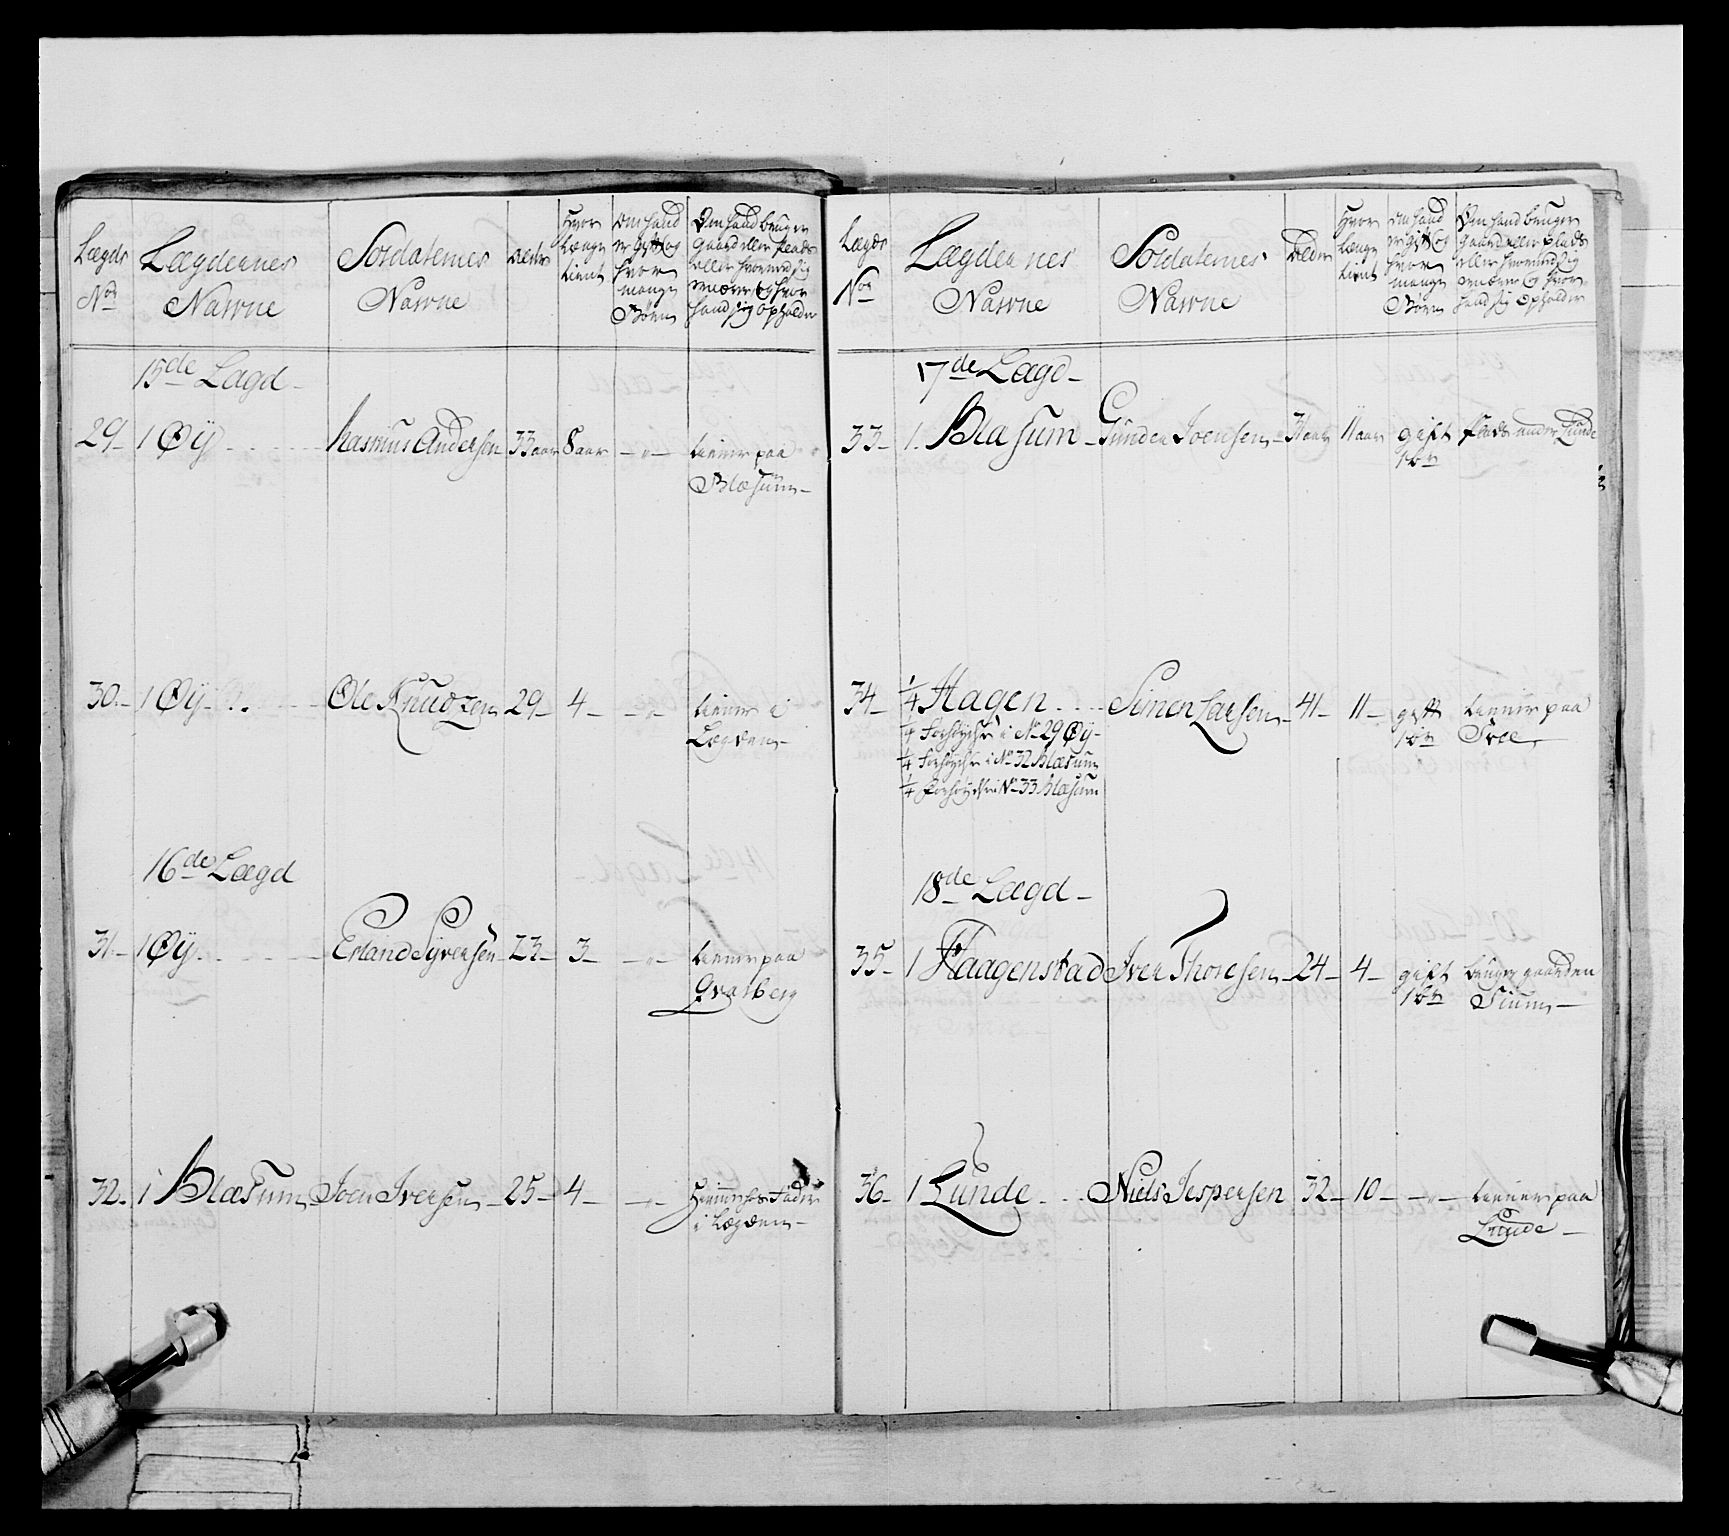 Lægds
No
Lægdernes
Navne
Soldaternes
Navne
Alder
Hvor
Længe
tient
Om hand
er gift og
hvor
mange
Børn
Om hand bruger
gaard eller Plads
eller hvormed sig
ernærer og hvor
hand sig opholder
15de Lægd
29 1 Øy Rasmus Andersen 33 aar 8 aar - " - tiener paa
Blæsum
30 1 Øy Ole Knudzen 29 4 - " - tiener i
Lægden
16de Lægd
31 1 Øy Erland Syversen 23 3 - " - tiener paa
Qvarberg
32 1 Blæsum Joen Iversen 25 4 - " - Hiemme hos Fader
i Lægden
Lægds
No
Lægdernes
Navne
Soldaternes
Navne
Alder
Hvor
Længe
tient
Om hand
er gift og
hvor
mange
Børn
Om hand bruger
gaard eller Plads
eller hvormed sig
ernærer og hvor
hand sig opholder
17de Lægd
33 1 Blæsum Gunder Joensen 31 aar 11 aar gift Plads under Lunde
1 bn
34 1/4 Hagen Simen Larsen 41 11 gift tiener paa
1/4 Forhøyelse i No 29 Øy 1 bn
1/4 Forhøyelse i No 32 Blæsum
1/4 Forhøyelse i No 33 Blæsum
18de Lægd
35 1 Haagenstad Iver Thoresen 24 4 gift bruger gaarden
1 bn
36 1 Lunde Niels Jespersen 32 10 - " - tiener paa
Lunde